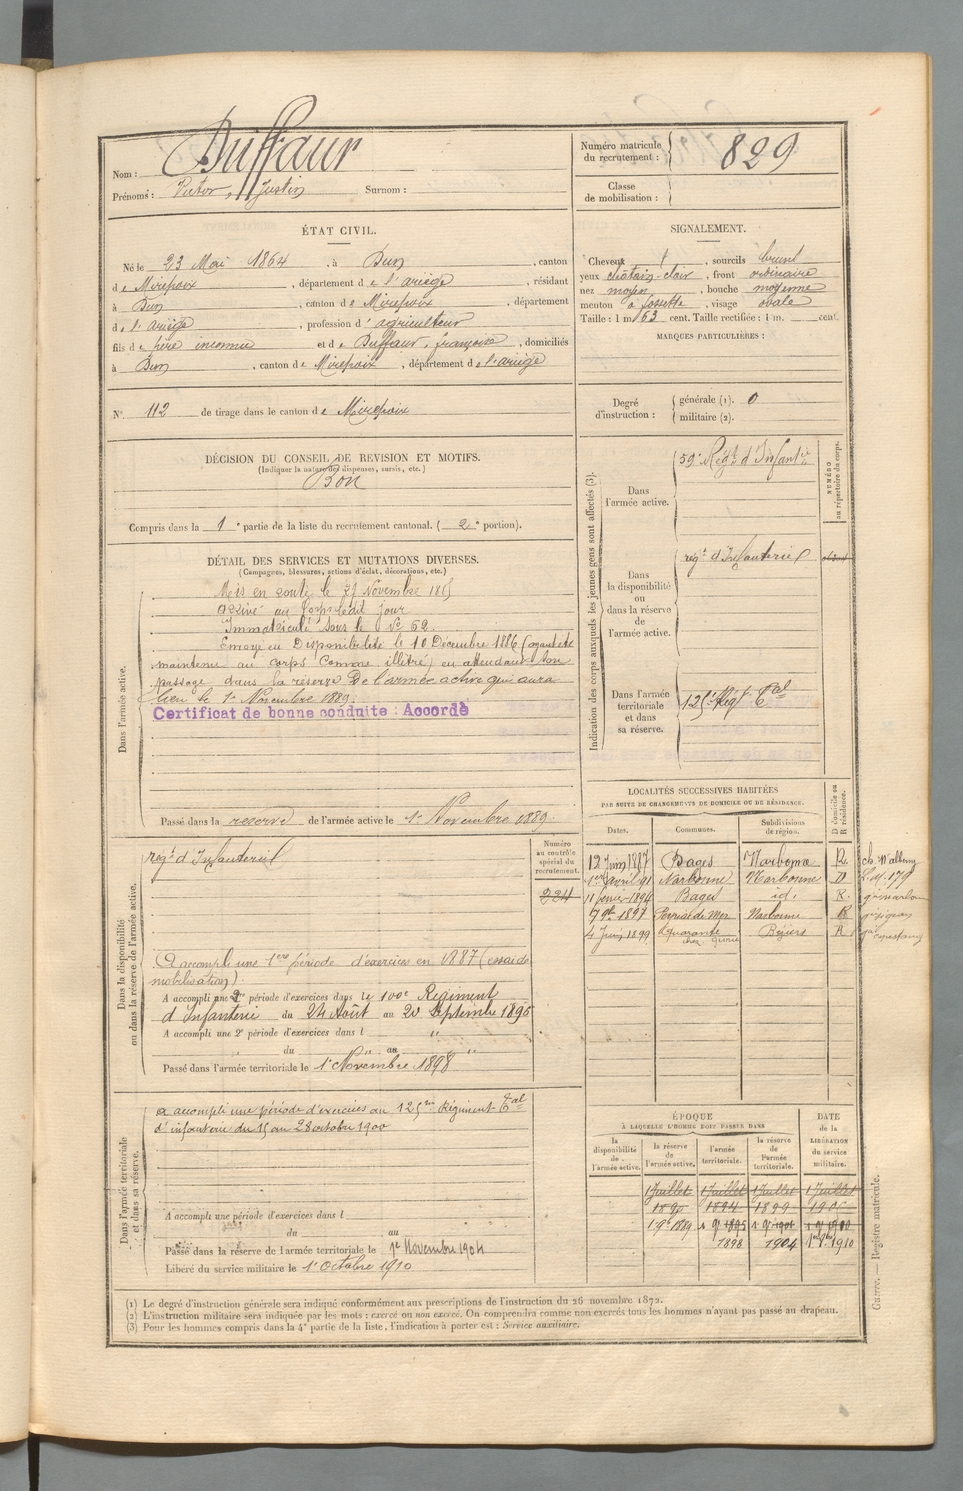 Nom : Duffaur
Prénoms : Victor, Justin Surnom :
Numéro matricule du recrutement : 829
Classe de mobilisation :
ÉTAT CIVIL.
Né le 23 Mai 1864, à Dun, canton
de Mirepoix, département de l'ariège, résidant
à Dun, canton de Mirepoix, département
de l'ariège, profession d'agriculteur
fils de père inconnu et de Duffaur, françoise, domiciliés
à Dun, canton de Mirepoix, département de l'ariège
N° 112 de tirage dans le canton de Mirepoix
SIGNALEMENT.
Cheveux , sourcils bruns
yeux châtain-clair, front ordinaire
nez moyen, bouche moyenne
menton à fossette, visage ovale
Taille : 1 m. 63 cent. Taille rectifiée : 1 m. cent.
MARQUES PARTICULIÈRES :
Degré d'instruction : générale (1). 0
militaire (2).
DÉCISION DU CONSEIL DE REVISION ET MOTIFS.
(Indiquer la nature des dispenses, sursis, etc.)
Bon
Compris dans la 1e partie de la liste du recrutement cantonal. (2e portion).
DÉTAIL DES SERVICES ET MUTATIONS DIVERSES.
(Campagnes, blessures, actions d'éclat, décorations, etc.)
Dans l'armée active.
Mis en route le 27 Novembre 1885
Arrivé au Corps ledit jour
Immatriculé sous le N° 62.
Envoyé en Disponibilité le 10 Décembre 1886 (ayant été
maintenu au corps comme illétré) en attendant son
passage dans la réserve De l'armée active qui aura
lieu le 1er Novembre 1889.
Certificat de bonne conduite : Accordé
Passé dans la reserve de l'armée active le 1er Novembre 1889
Indication des corps auxquels les jeunes gens sont affectés (3).
NUMÉRO au répertoire du corps.
Dans l'armée active.
59e Régt d'Infantie
Dans la disponibilité ou dans la réserve de l'armée active.
régt d'Infanterie
Dans l'armée territoriale et dans sa réserve.
125e Régt Tal
LOCALITÉS SUCCESSIVES HABITÉES
PAR SUITE DE CHANGEMENTS DE DOMICILE OU DE RÉSIDENCE.
Dates. Communes. Subdivisions de région. D domicile ou R résidence.
12 Juin 1887 Bages Narbonne R.
1er avril 91 Narbonne Narbonne D
11 février 1894 Bages id. R.
7 9bre 1897 Peyriac de Mer Narbonne R
4 Juin 1899 Quarante Béziers R
Dans la disponibilité ou dans la réserve de l'armée active.
Numéro au contrôle spécial du recrutement.
224
régt d'Infanterie
A accompli une 1ère période d'exercices en 1887 (essai de
mobilisation)
A accompli une 2e période d'exercices dans le 100e Régiment
d'Infanterie du 24 Août au 20 Septembre 1895
A accompli une 2e période d'exercices dans l "
du " au "
Passé dans l'armée territoriale le 1er Novembre 1898
Dans l'armée territoriale et dans sa réserve.
a accompli une période d'exercices au 125me Régiment Tal
d'infanterie du 15 au 28 octobre 1900
A accompli une période d'exercices dans l
du au
Passé dans la réserve de l'armée territoriale le 1er Novembre 1904
Libéré du service militaire le 1er Octobre 1910
ÉPOQUE
À LAQUELLE L'HOMME DOIT PASSER DANS
la disponibilité de l'armée active. la réserve de l'armée active. l'armée territoriale. la réserve de l'armée territoriale.
DATE DE LA LIBÉRATION du service militaire.
1 Juillet 1 Juillet 1 Juillet 1 Juillet
1890 1894 1899
1 9e 1889
1898 1904 1910
Guerre. — Registre matricule.
(1) Le degré d'instruction générale sera indiqué conformément aux prescriptions de l'instruction du 26 novembre 1872.
(2) L'instruction militaire sera indiquée par les mots : exercé ou non exercé. On comprendra comme non exercés tous les hommes n'ayant pas passé au drapeau.
(3) Pour les hommes compris dans la 4e partie de la liste, l'indication à porter est : Service auxiliaire.